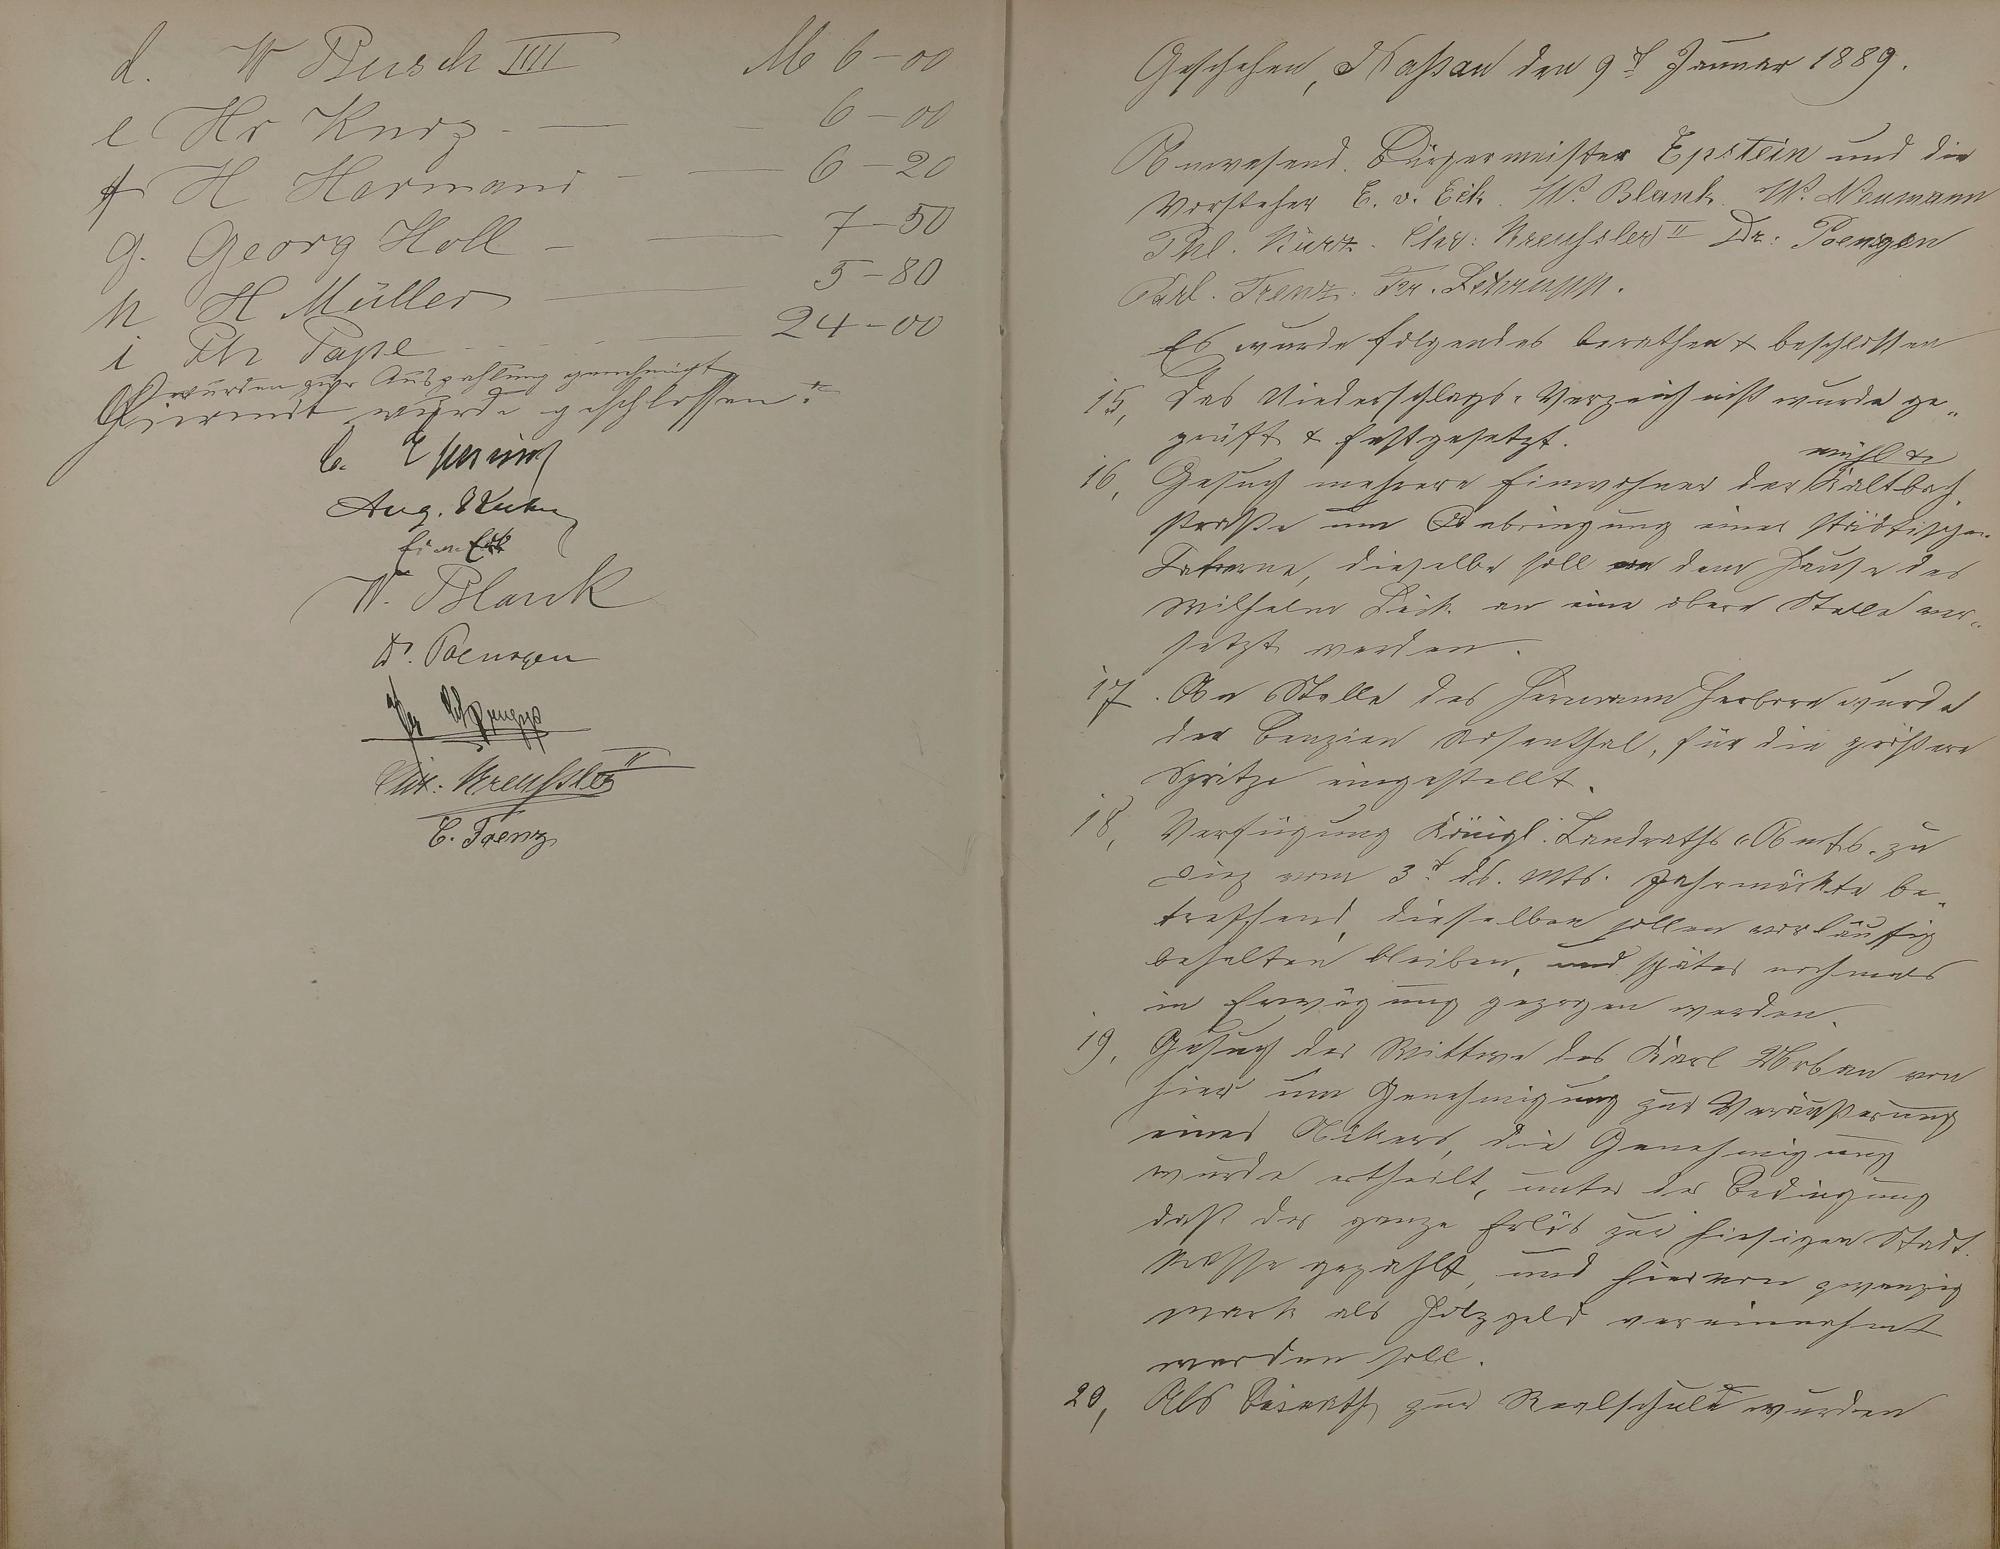 d. W Busch IIII M 6-00
e Hr Kurz - — — 6-00
f H Hermann - — 6-20
g. Georg Holl - — 7-50
h H Müller — 5-80
i Ph Pape - - — 24-00
wurden zur Auszahlung genehmigt
Hiermit wurde geschlossen:
C. Epstein
Aug.
E. v. Eck
W. Blank
Dr. Poensgen
Fr Schrupp
Chr: Kreussler II
C. Trenz
Geschehen, Naßau den 9t Januar 1889.
Anwesend. Bürgermeister Epstein und die
Vorsteher E. v. Eck. W. Blank. W. Neumann
Phl. Kurz. Chr: Kreussler II Dr: Poensgen
Karl. Trenz. Fr. Schrupp.
Es wurde folgendes berathen & beschlossen
15, Das Niederschlags-Verzeichniß wurde ge-
prüft & festgesetzt.
mühl &
16, Gesuch mehrere Einwohner der Kaltbach
straße um Anbringung einer städtischen
Laterne, dieselbe soll von dem Hause des
Wilhelm Bück an eine obere Stelle ver-
setzt werden.
17. An Stelle des Hermann Herborn wurde
der Benzion Rosenthal, für die größere
Spritze eingestellt.
18, Verfügung Königl. Landraths-Amts. zu
Diez vom 3t ds. Mts. Jahrmärkte be-
treffend, dieselben sollen vorläufig
behalten bleiben, und später nochmals
in Erwägung gezogen werden.
19, Gesuch der Wittwe des Karl Urban von
hier um Genehmigung zur Veräußerung
eines Ackers, die Genehmigung
wurde ertheilt, unter der Bedingung
daß der ganze Erlös zur hiesigen Stadt
kasse gezahlt, und hiervon zwanzig
Mark als Holzgeld vereinnahmt
werden soll.
20, Als Beirath zur Realschule wurden